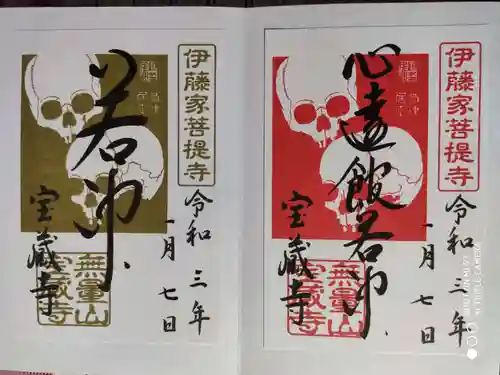 伊藤家菩提寺
令和三年
一月七日
心遠館若冲
宝蔵寺
無量山
宝蔵寺
伊藤家菩提寺
令和三年
一月七日
若冲
宝蔵寺
無量山
宝蔵寺